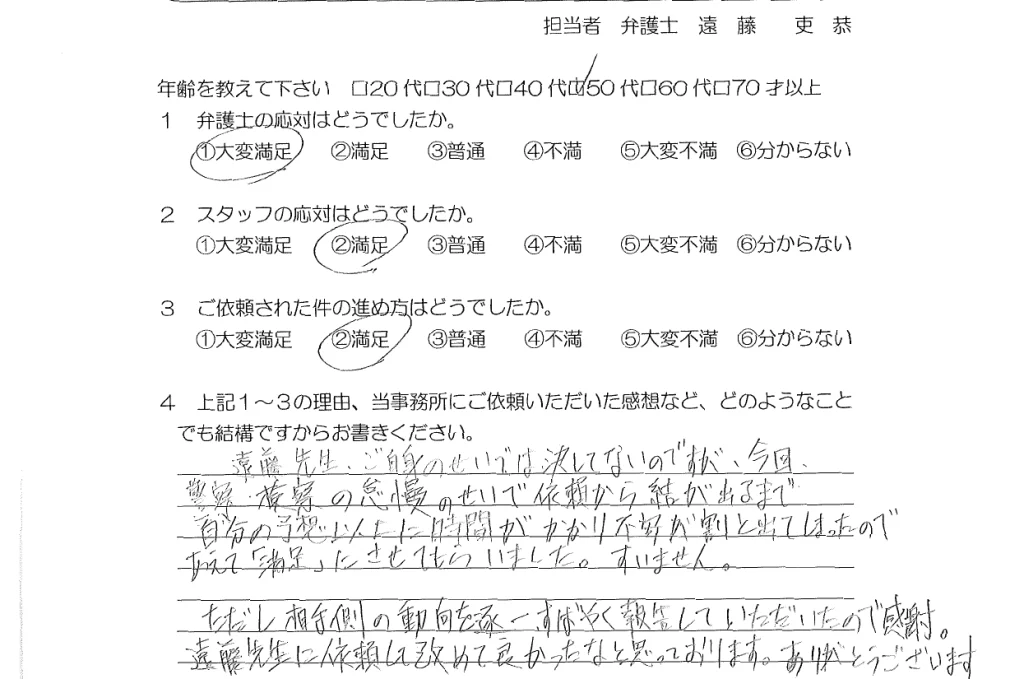 担当者 弁護士 遠藤 吏恭
年齢を教えて下さい □20代□30代□40代□50代□60代□70才以上
1 弁護士の応対はどうでしたか。
①大変満足 ②満足 ③普通 ④不満 ⑤大変不満 ⑥分からない
2 スタッフの応対はどうでしたか。
①大変満足 ②満足 ③普通 ④不満 ⑤大変不満 ⑥分からない
3 ご依頼された件の進め方はどうでしたか。
①大変満足 ②満足 ③普通 ④不満 ⑤大変不満 ⑥分からない
4 上記1~3の理由、当事務所にご依頼いただいた感想など、どのようなこと
でも結構ですからお書きください。
遠藤先生、ご自身のせいでは決してないのですが、今回、
警察・検察の怠慢のせいで依頼から結が出るまで
自分の予想以上に時間がかかり不安が割と出てしまったので
あえて「満足」にさせてもらいました。すいません。
ただし相手側の動向を逐一すばやく報告していただいたので感謝。
遠藤先生に依頼して改めて良かったなと思っております。ありがとうございます